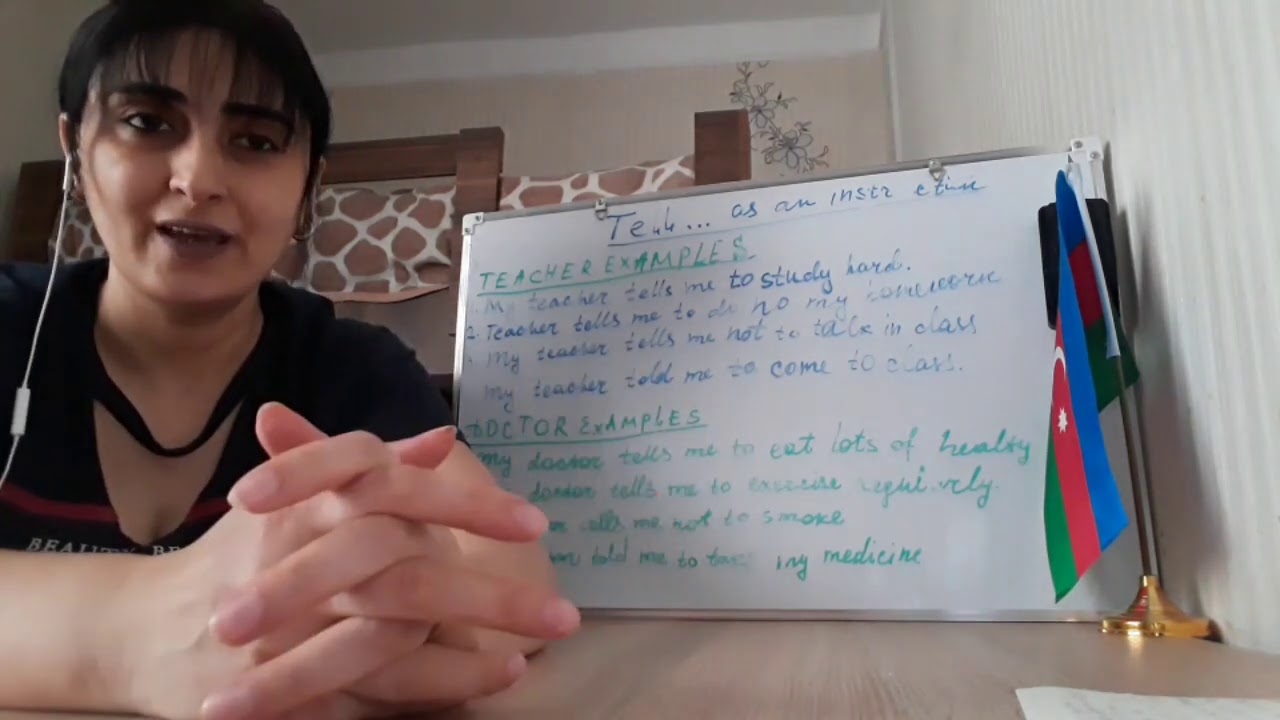 Tell... as an instr ction
TEACHER EXAMPLES
My teacher tells me to study hard.
2. Teacher tells me to do no my homework
My teacher tells me not to talk in class
My teacher told me to come to class.
DOCTOR EXAMPLES
My doctor tells me to eat lots of healty
doctor tells me to exercise
me not to smoke
told me to my medicine
BEAUTY BE